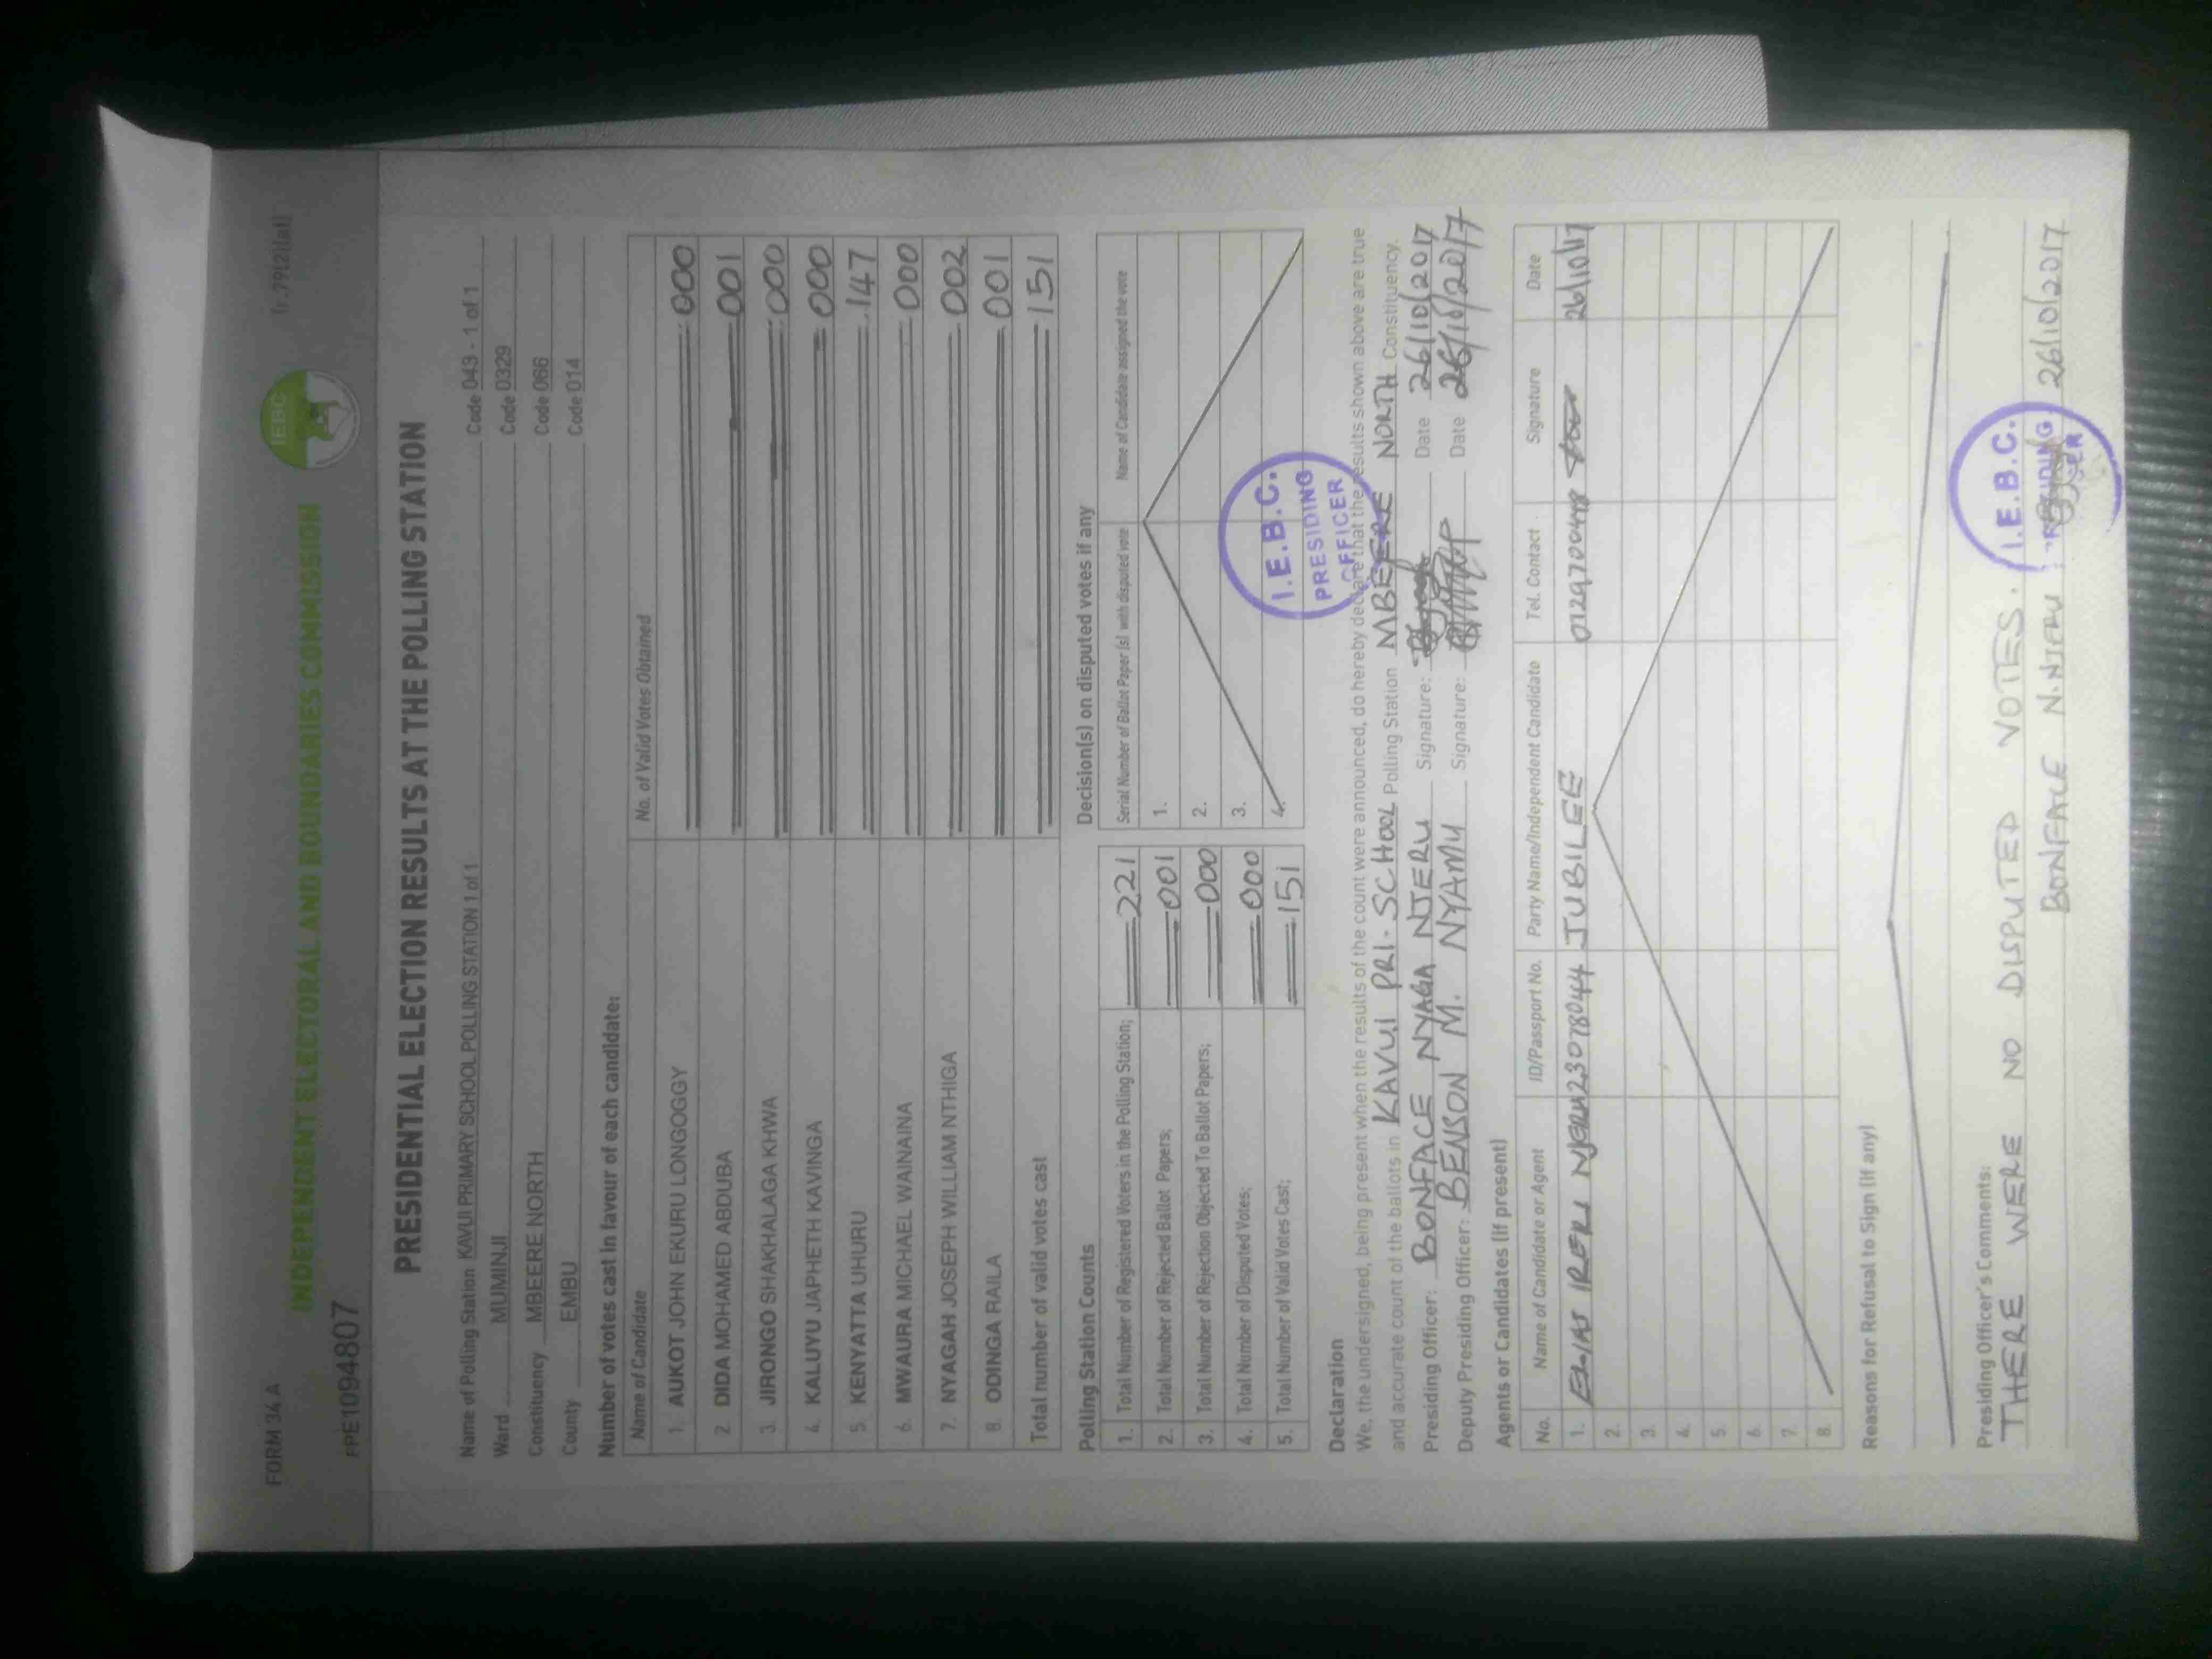 FORM 34 A
INDEPENDENT ELECTORAL AND BOUNDARIES COMMISSION
IEBC
(r.79(2)(a))
FPE1094807
PRESIDENTIAL ELECTION RESULTS AT THE POLLING STATION
Name of Polling Station KAVUI PRIMARY SCHOOL POLLING STATION 1 of 1 Code 043 - 1 of 1
Ward MUMINJI Code 0329
Constituency MBEERE NORTH Code 066
County EMBU Code 014
Number of votes cast in favour of each candidate:
Name of Candidate No. of Valid Votes Obtained
1. AUKOT JOHN EKURU LONGOGGY 000
2. DIDA MOHAMED ABDUBA 001
3. JIRONGO SHAKHALAGA KHWA 000
4. KALUYU JAPHETH KAVINGA 000
5. KENYATTA UHURU 147
6. MWAURA MICHAEL WAINAINA 000
7. NYAGAH JOSEPH WILLIAM NTHIGA 002
8. ODINGA RAILA 001
Total number of valid votes cast 151
Polling Station Counts
1. Total Number of Registered Voters in the Polling Station; 221
2. Total Number of Rejected Ballot Papers; 001
3. Total Number of Rejection Objected To Ballot Papers; 000
4. Total Number of Disputed Votes; 000
5. Total Number of Valid Votes Cast; 151
Decision(s) on disputed votes if any
Serial Number of Ballot Paper (s) with disputed vote Name of Candidate assigned the vote
1.
2.
3.
4.
I.E.B.C.
PRESIDING
OFFICER
Declaration
We, the undersigned, being present when the results of the count were announced, do hereby declare that the results shown above are true
and accurate count of the ballots in KAVUI PRI-SCHOOL Polling Station MBEERE NORTH Constituency.
Presiding Officer: BONFACE NYAGA NJERU Signature: Date 26/10/2017
Deputy Presiding Officer: BENSON M. NYAMU Signature: Date 26/10/2017
Agents or Candidates (if present)
No. Name of Candidate or Agent ID/Passport No. Party Name/Independent Candidate Tel. Contact Signature Date
1. ELIAS IRERI 23078044 JUBILEE 26/10/17
2.
3.
4.
5.
6.
7.
8.
Reasons for Refusal to Sign (if any)
Presiding Officer's Comments:
THERE WERE NO DISPUTED VOTES.
BONFACE N. NJERU 26/10/2017
I.E.B.C.
PRESIDING